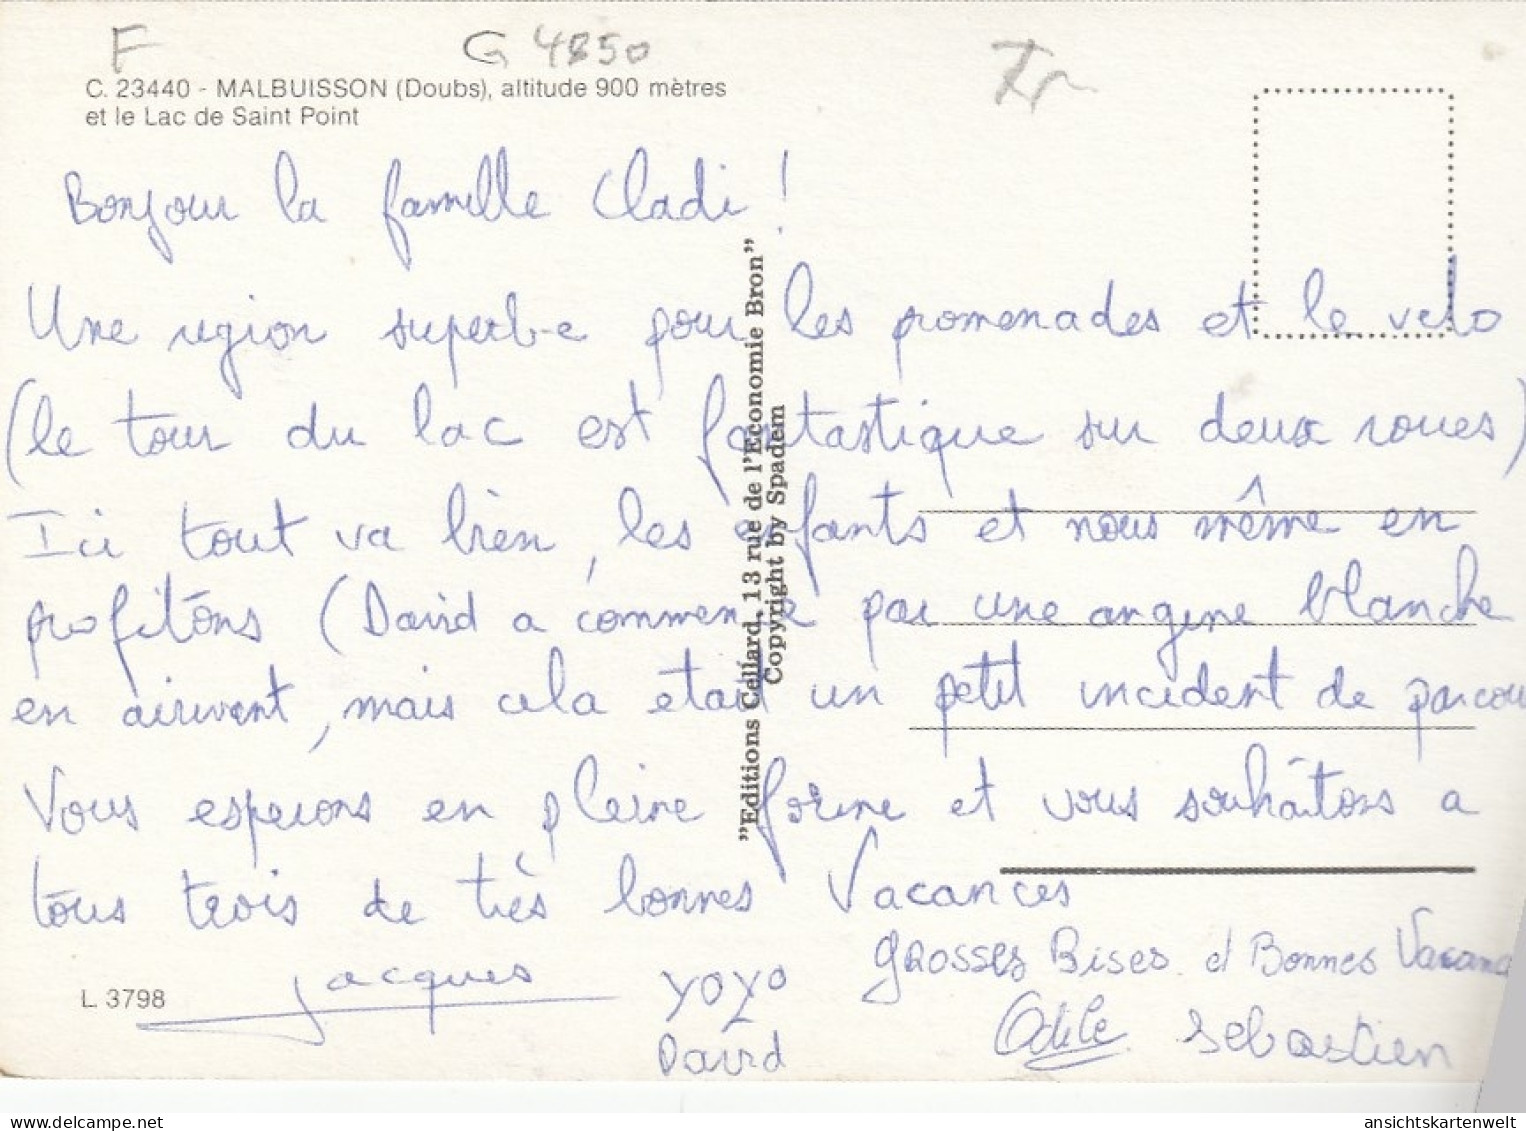 F G 4850
C. 23440 - MALBUISSON (Doubs), altitude 900 mètres
et le Lac de Saint Point
Bonjour la famille Cladi !
Une region superbe pour les promenades et le velo
(le tour du lac est fantastique sur deux roues)
Ici tout va bien, les enfants et nous même en
profitons (David a commencé par une angine blanche
en arrivant, mais cela etait un petit incident de parcou
Vous esperons en pleine forme et vous souhaitons a
tous trois de très bonnes Vacances
Jacques
YOYO
David
grosses Bises et Bonnes Vacan
Odile Sebastien
L 3798
"Editions Cellard, 13 rue de l'Economie Bron"
Copyright by Spadem
ansichtskartenwelt